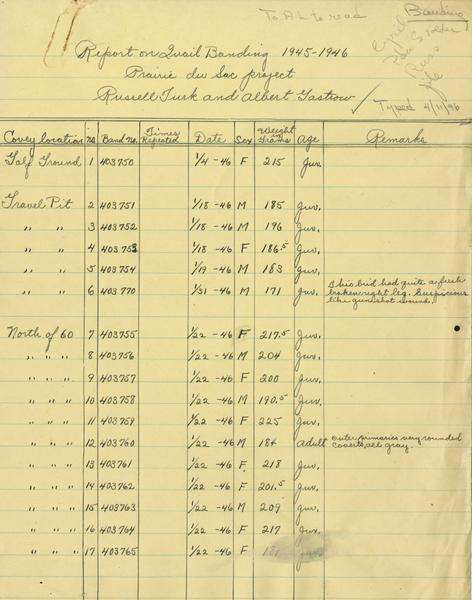 To A.L. to read
Banding
File
Report on Quail Banding 1945-1946
Prairie du Sac project
Russell Turk and Albert Gastrow
Typed 4/11/96
Covey location No. Band No. Times Repeated Date Sex Weight Grams Age Remarks
Golf Ground 1 403750 1/4 -46 F 215 Juv.
Gravel Pit 2 403751 1/18 -46 M 185 Juv.
" " 3 403752 1/18 -46 M 196 Juv.
" " 4 403753 1/18 -46 F 186.5 Juv.
" " 5 403754 1/19 -46 M 183 Juv.
" " 6 403770 1/31 -46 M 171 Juv. This bird had quite a fresh
broken right leg. Suspicious
like gunshot wound.
North of 60 7 403755 1/22 -46 F 217.5 Juv.
" " " 8 403756 1/22 -46 M 204 Juv.
" " " 9 403757 1/22 -46 F 200 Juv.
" " " 10 403758 1/22 -46 M 190.5 Juv.
" " " 11 403759 1/22 -46 F 225 Juv.
" " " 12 403760 1/22 -46 M 184 adult outer primaries very rounded
coverts all gray.
" " " 13 403761 1/22 -46 F 218 Juv.
" " " 14 403762 1/22 -46 F 201.5 Juv.
" " " 15 403763 1/22 -46 M 209 Juv.
" " " 16 403764 1/22 -46 F 217 Juv.
" " " 17 403765 1/22 -46 F Juv.